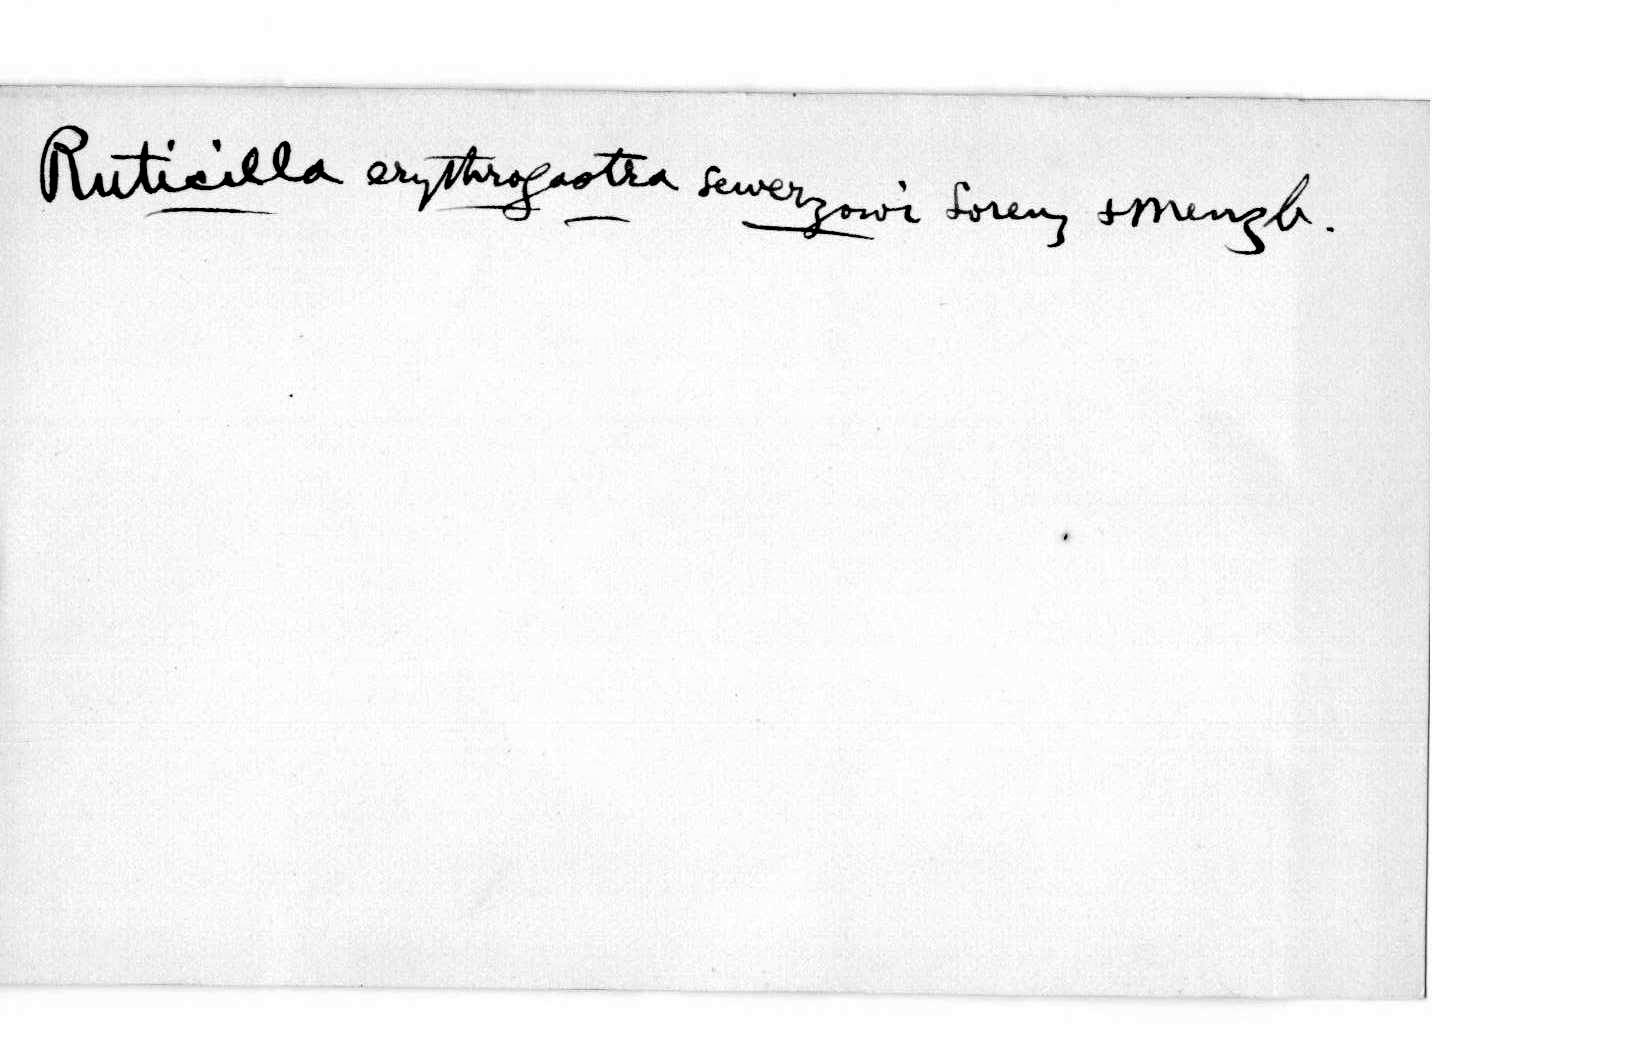 Ruticilla erythrogastra sewerzowi Lorenz & Menzb.